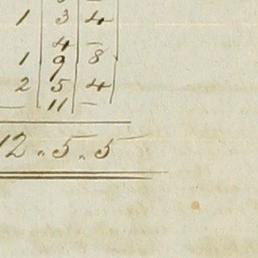 1 3 4
4 —
1 9 8
2 5 4
11 —
12 . 5 . 5